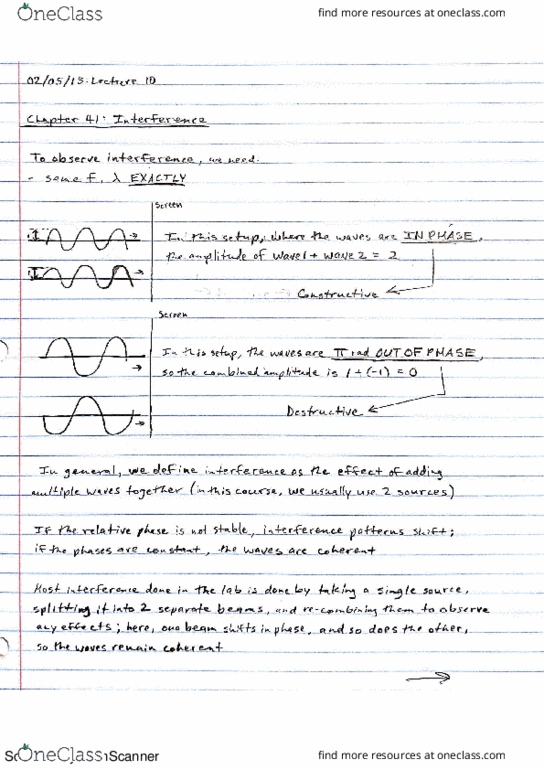 OneClass
find more resources at oneclass.com
02/05/13. Lecture 10
Chapter 41: Interference
To observe interference, we need:
- same f, λ EXACTLY
Screen
In this setup, where the waves are IN PHASE,
the amplitude of wave 1 + wave 2 = 2
Constructive
Screen
In this setup, the waves are π rad OUT OF PHASE,
so the combined amplitude is 1 + (-1) = 0
Destructive
In general, we define interference as the effect of adding
multiple waves together (in this course, we usually use 2 sources)
If the relative phase is not stable, interference patterns shift;
if the phases are constant, the waves are coherent
Most interference done in the lab is done by taking a single source,
splitting it into 2 separate beams, and re-combining them to observe
any effects; here, one beam shifts in phase, and so does the other,
so the waves remain coherent
OneClass
Scanner
find more resources at oneclass.com